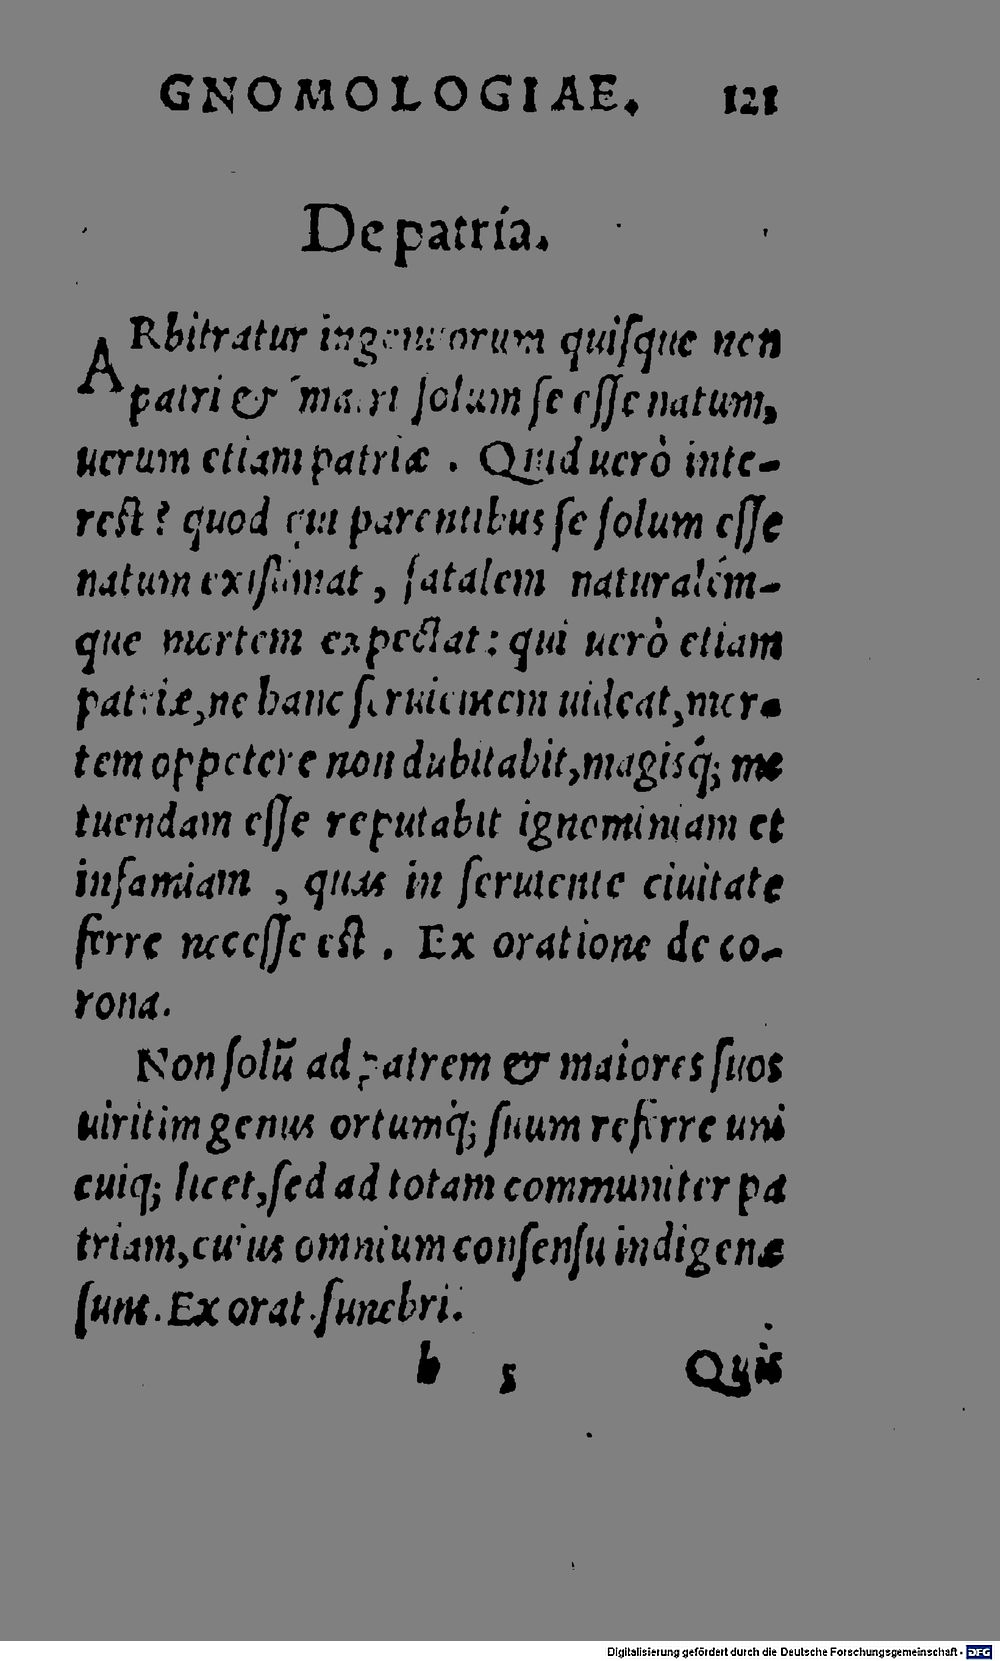 GNOMOLOGIAE. 121
De patria.
ARbitratur ingenuorum quisque non
patri & matri solum se esse natum,
uerum etiam patriæ. Quid uerò inte-
rest? quod qui parentibus se solum esse
natum existimat, fatalem naturalém-
que mortem expectat: qui uerò etiam
patriæ, ne hanc seruientem uideat, mor-
tem oppetere non dubitabit, magisq́; me
tuendam esse reputabit ignominiam et
infamiam, quas in seruiente ciuitate
ferre necesse est. Ex oratione de co-
rona.
Non solũ ad patrem & maiores suos
uiritim genus ortumq́; suum referre uni
cuiq; licet, sed ad totam communiter pa
triam, cuius omnium consensu indigenæ
sunt. Ex orat. funebri.
h 5 Quis
Digitalisierung gefördert durch die Deutsche Forschungsgemeinschaft - DFG